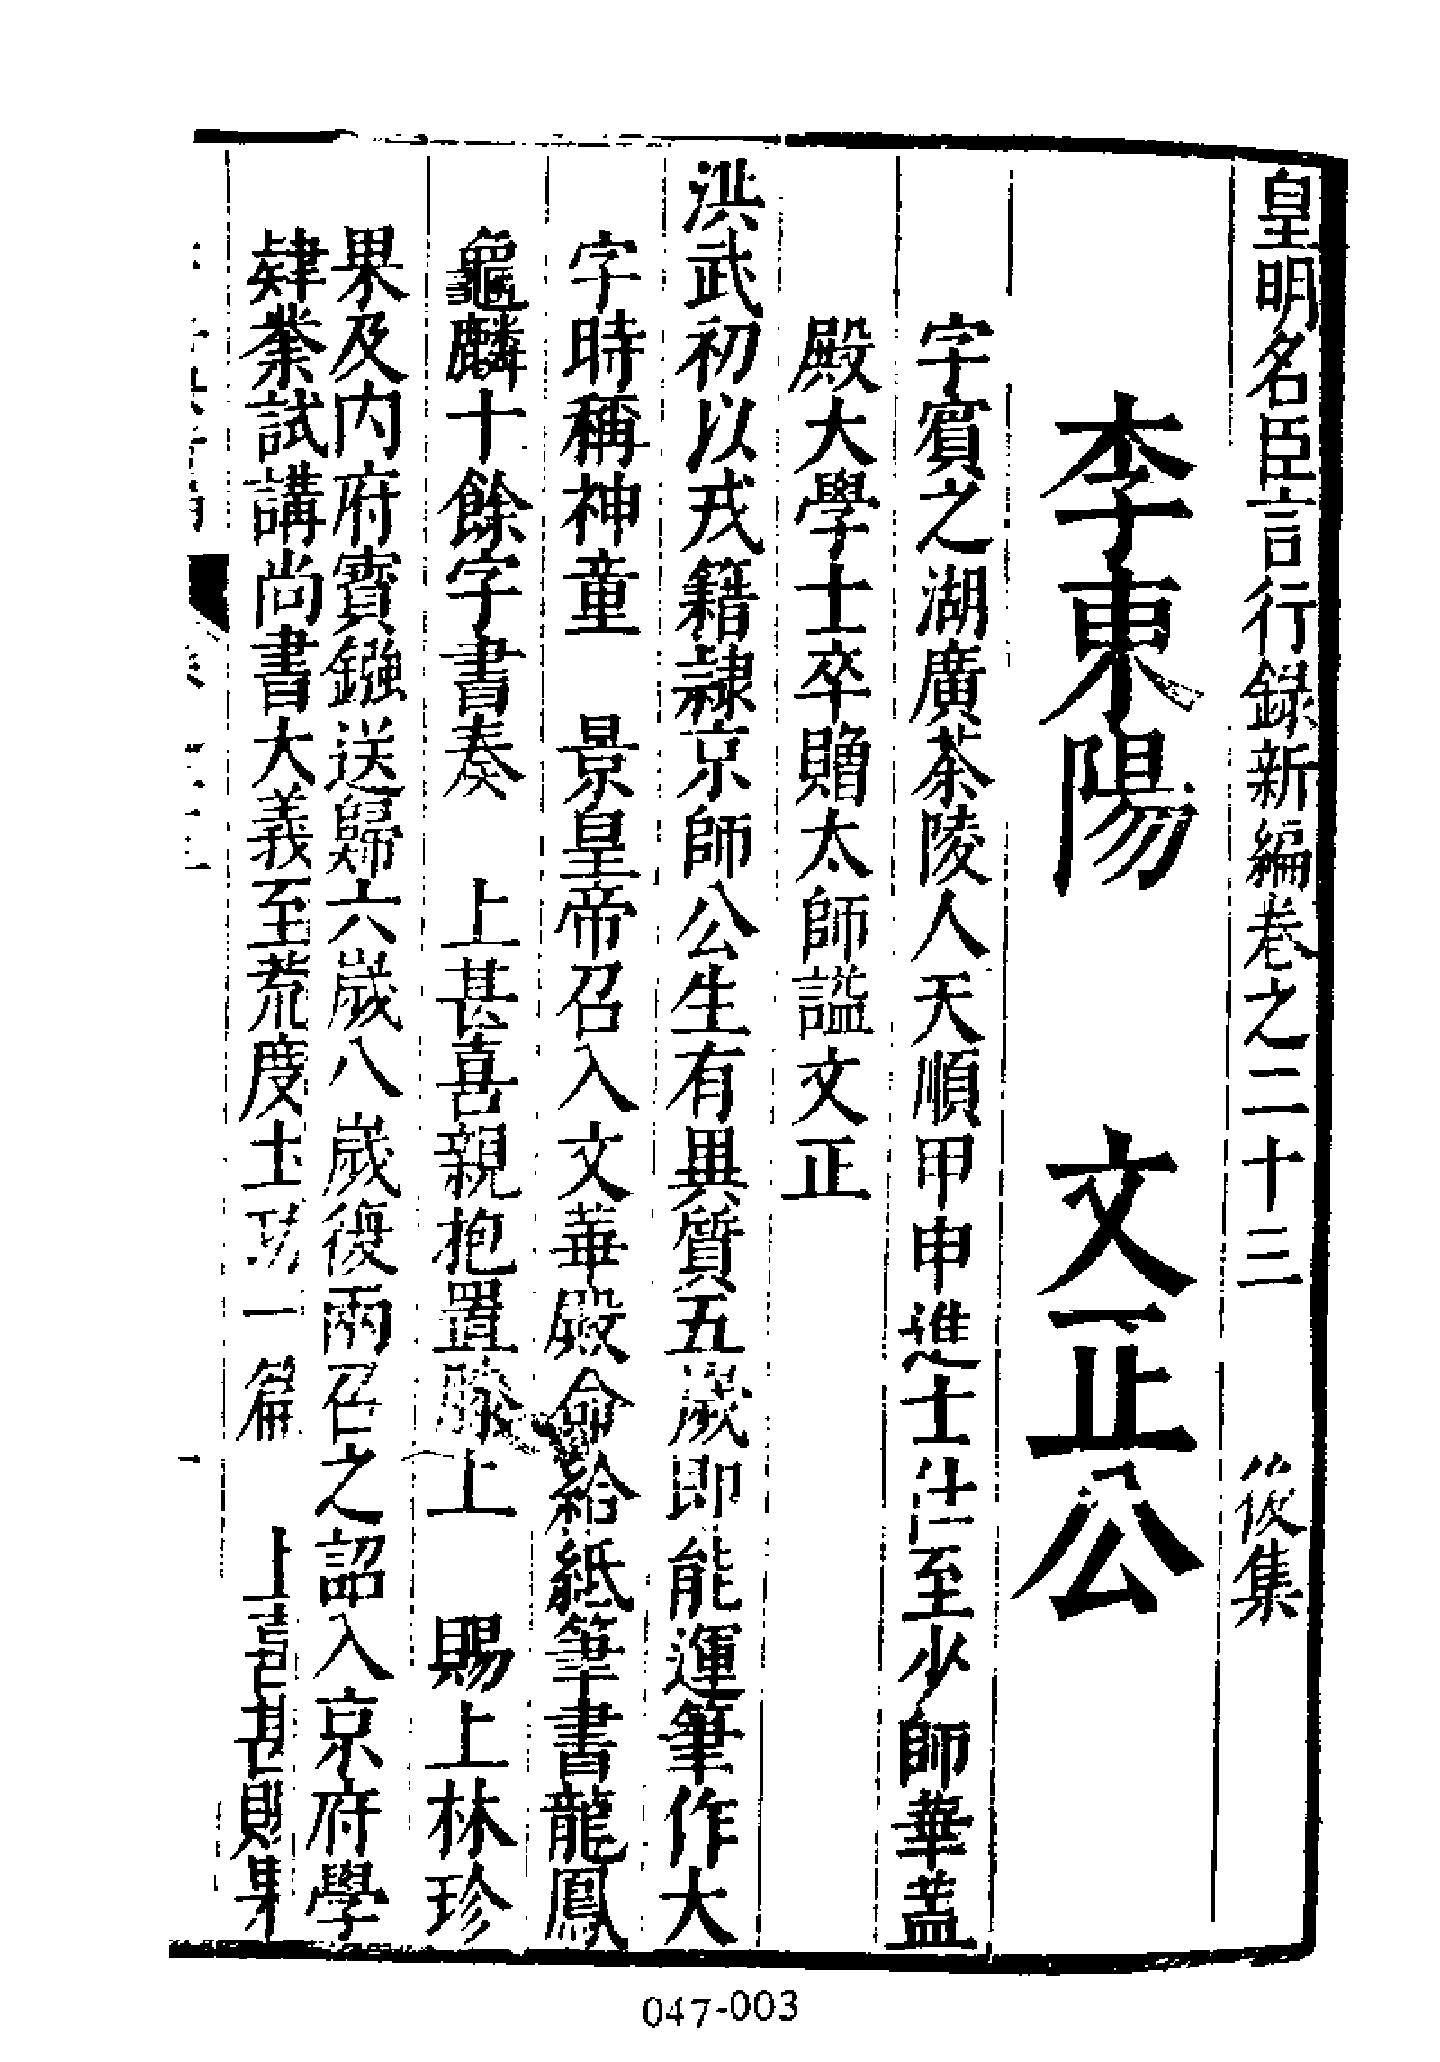 皇明名臣言行録新編卷之二十三 後集
李東陽 文正公
字賓之湖廣茶陵人天順甲申進士仕至少師華蓋
殿大學士卒贈太師謚文正
洪武初以戎籍隷京師公生有異質五歲即能運筆作大
字時稱神童 景皇帝召入文華殿命給紙筆書龍鳳
龜麟十餘字書奏 上甚喜親抱置膝上 賜上林珍
果及内府寶鏹送歸六歲八歲復兩召之詔入京府學
肄業試講尚書大義至荒度土功一篇 上喜甚賜果
047-003